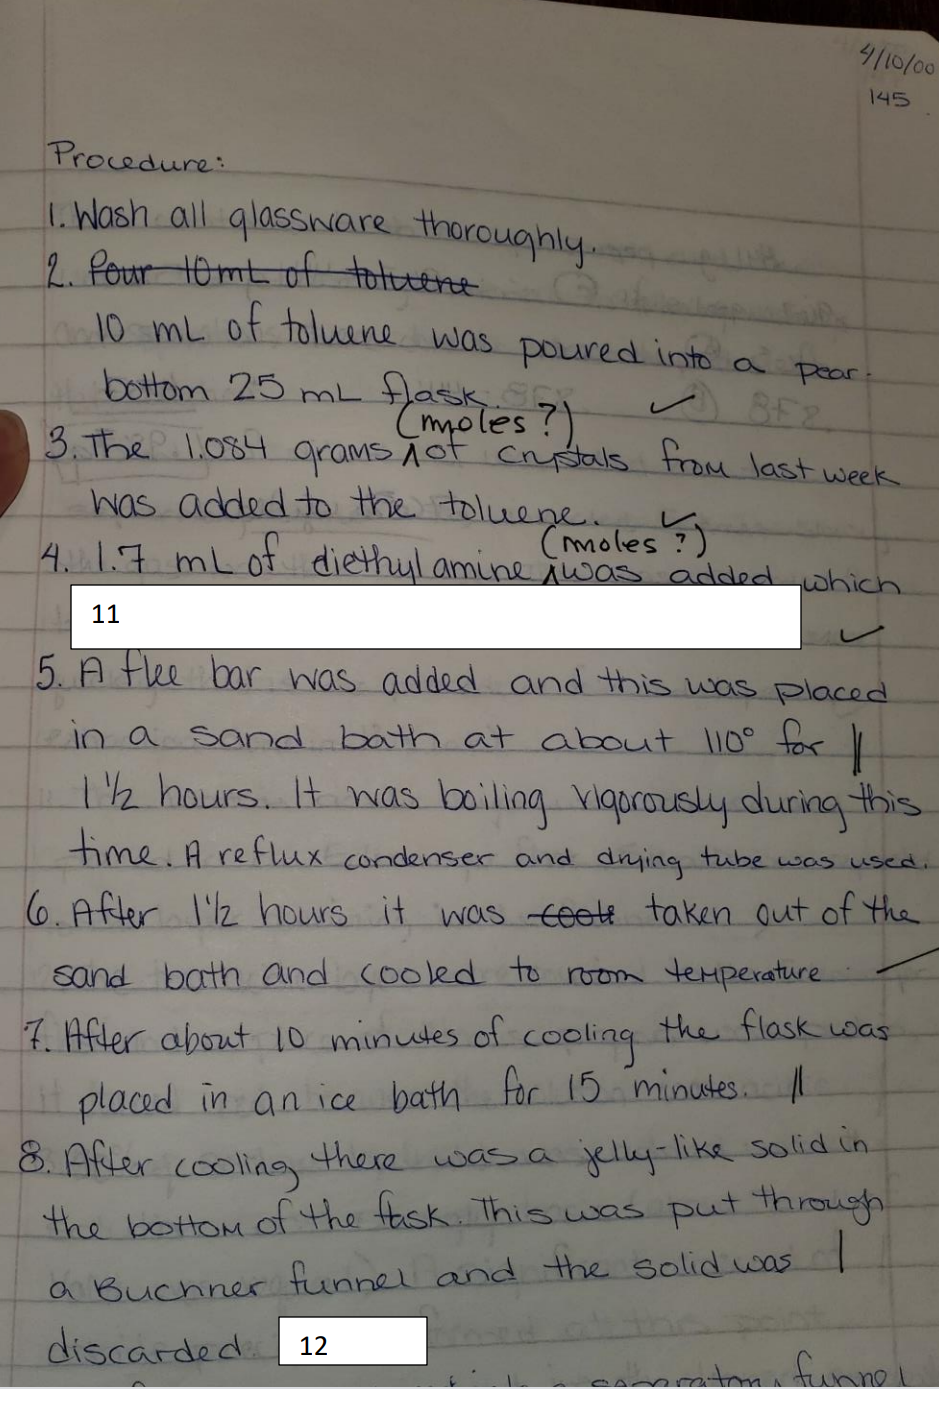 4/10/00
145
Procedure:
1. Wash all glassware thoroughly.
2. Pour 10mL of toluene
10 mL of toluene was poured into a pear
bottom 25 mL flask.
(moles ?)
3. The 1.084 grams of crystals from last week
was added to the toluene.
(moles ?)
4. 1.7 mL of diethylamine was added which
11
5. A flee bar was added and this was placed
in a sand bath at about 110° for
1 1/2 hours. It was boiling vigorously during this
time. A reflux condenser and drying tube was used.
6. After 1 1/2 hours it was taken out of the
sand bath and cooled to room temperature
7. After about 10 minutes of cooling the flask was
placed in an ice bath for 15 minutes.
8. After cooling there was a jelly-like solid in
the bottom of the flask. This was put through
a Buchner funnel and the solid was
discarded 12
funnel